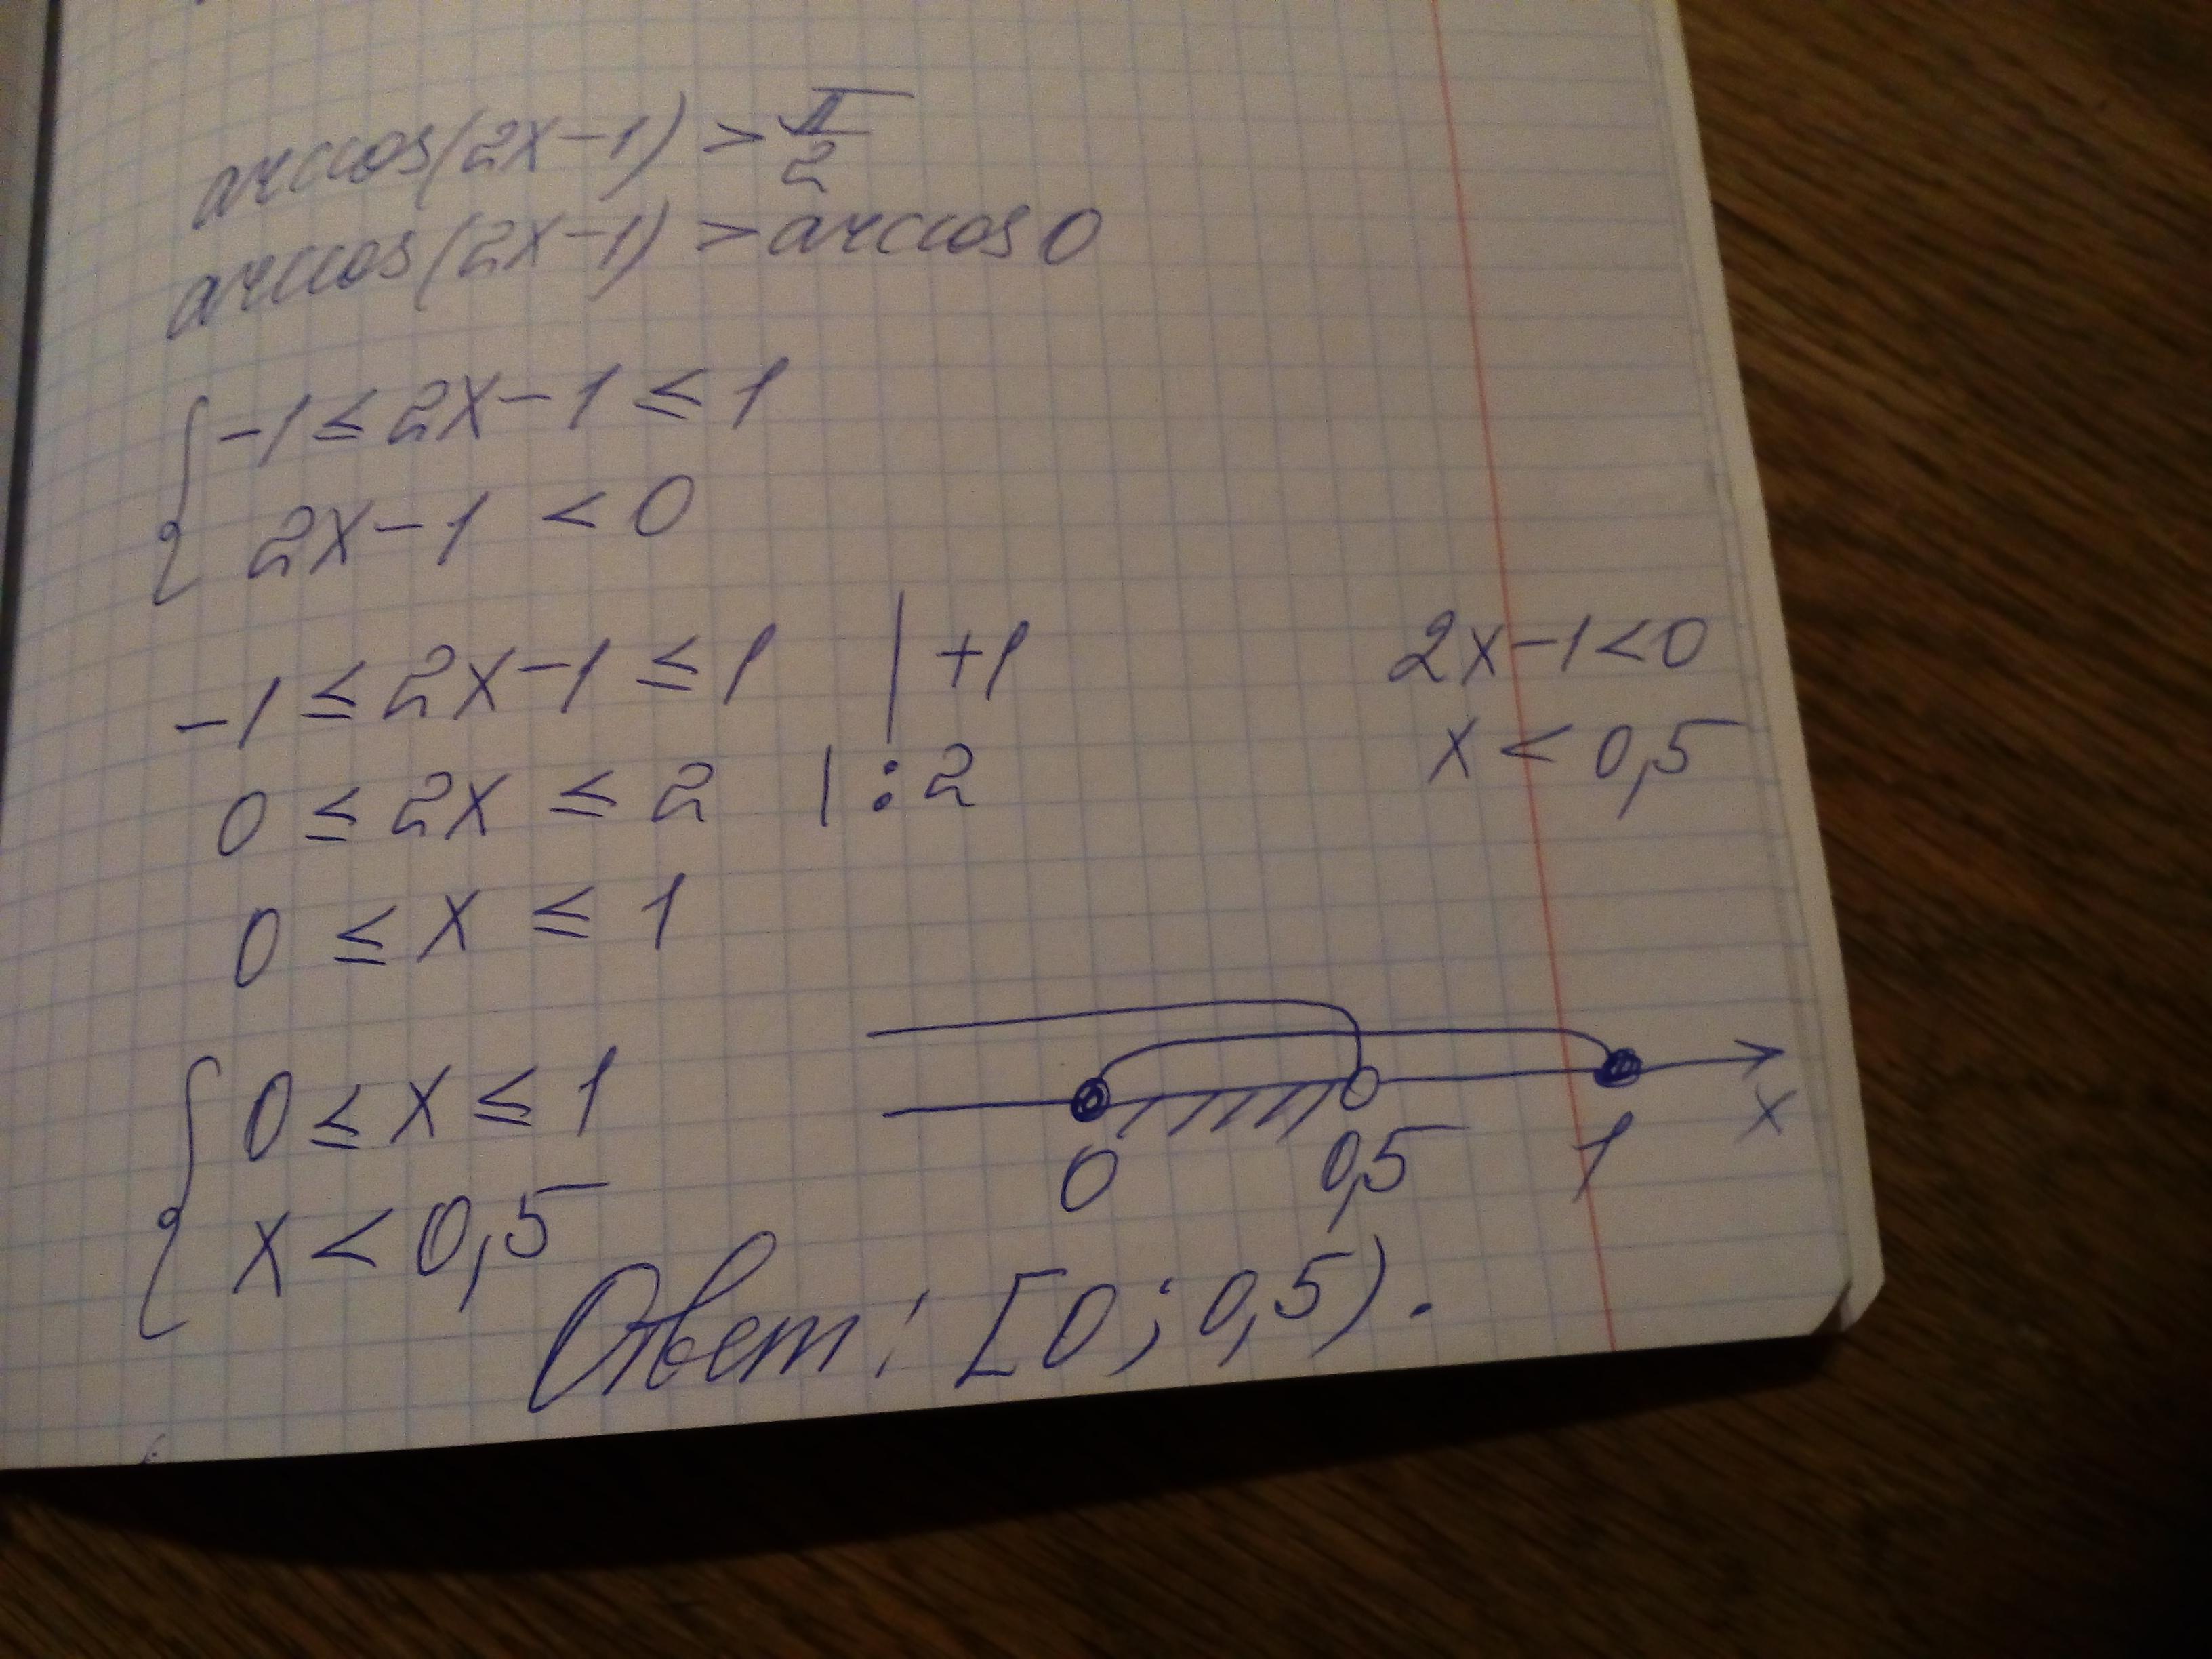 arccos(2x-1) > π/2
arccos(2x-1) > arccos 0
{ -1 ≤ 2x-1 ≤ 1
2x-1 < 0
-1 ≤ 2x-1 ≤ 1 | +1
0 ≤ 2x ≤ 2 | : 2
0 ≤ x ≤ 1
2x-1<0
x < 0,5
{ 0 ≤ x ≤ 1
x < 0,5
0 0,5 1 x
Ответ: [0; 0,5).